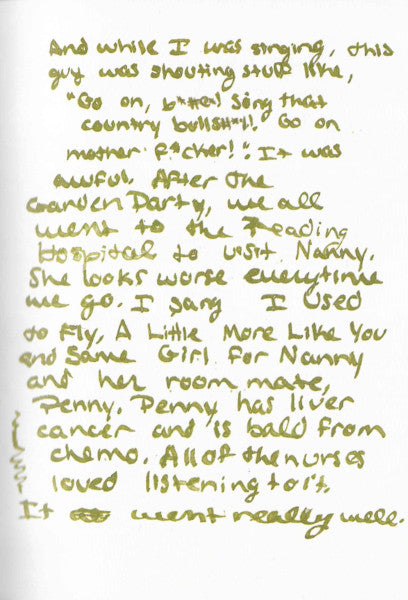 And while I was singing, this
guy was shouting stuff like,
"Go on, b*#@! Sing that
country bullsh*t! Go on
mother f*cher!". It was
awful. After the
Garden Party, we all
went to the Reading
Hospital to visit Nanny.
She looks worse everytime
we go. I sang I Used
to Fly, A Little More Like You
and Same Girl for Nanny
and her room mate,
Penny. Penny has liver
cancer and is bald from
chemo. All of the nurses
loved listening to it.
It went really well.